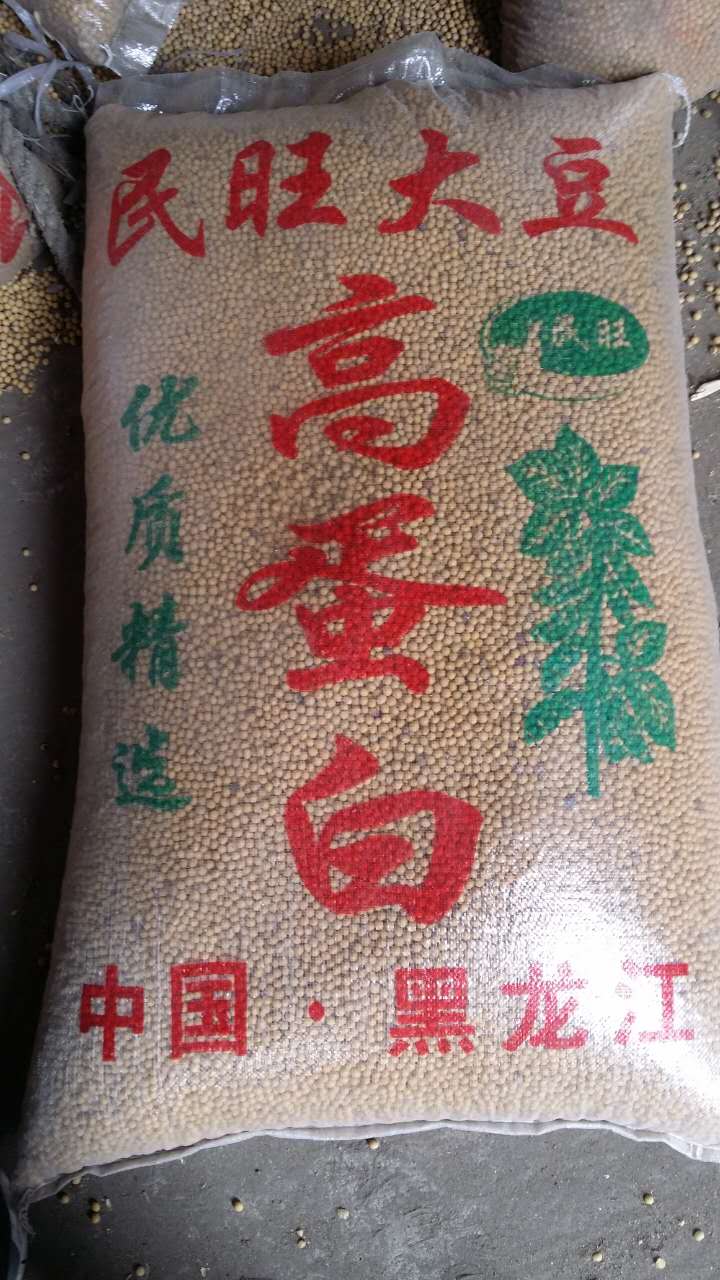 民旺大豆
民旺
高蛋白
优质精选
中国·黑龙江